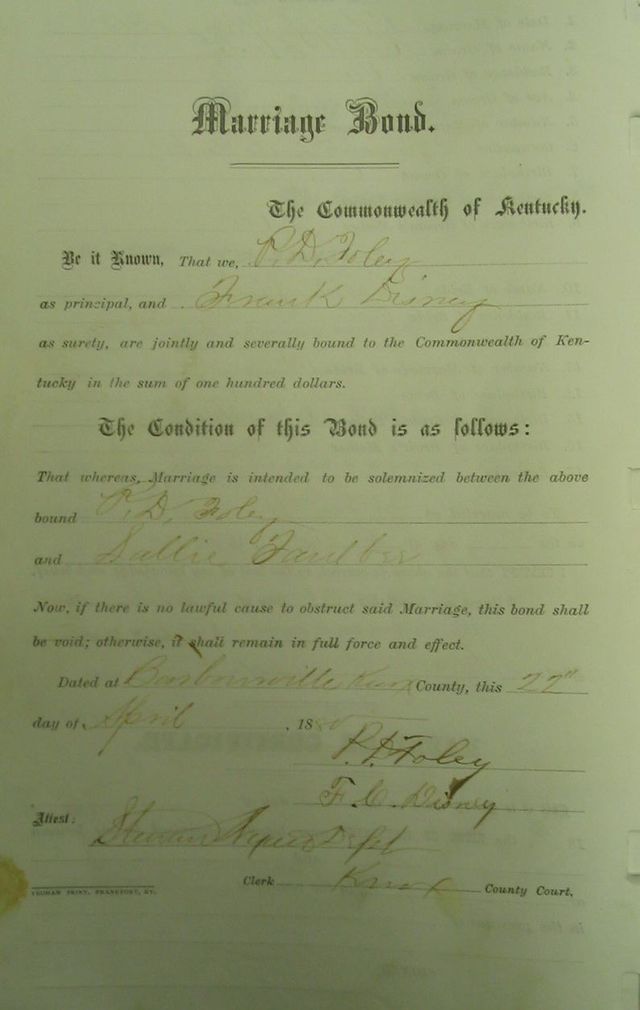 Marriage Bond.
The Commonwealth of Kentucky.
Be it Known, That we, P. D. Foley
as principal, and Frank Disney
as surety, are jointly and severally bound to the Commonwealth of Ken-
tucky in the sum of one hundred dollars.
The Condition of this Bond is as follows:
That whereas, Marriage is intended to be solemnized between the above
bound P. D. Foley
and Sallie
Now, if there is no lawful cause to obstruct said Marriage, this bond shall
be void; otherwise, it shall remain in full force and effect.
Dated at Barbourville Knox County, this 27"
day of April, 188
P. D. Foley
F. C. Disney
Attest:
Clerk Knox County Court.
YEOMAN PRINT, FRANKFORT, KY.